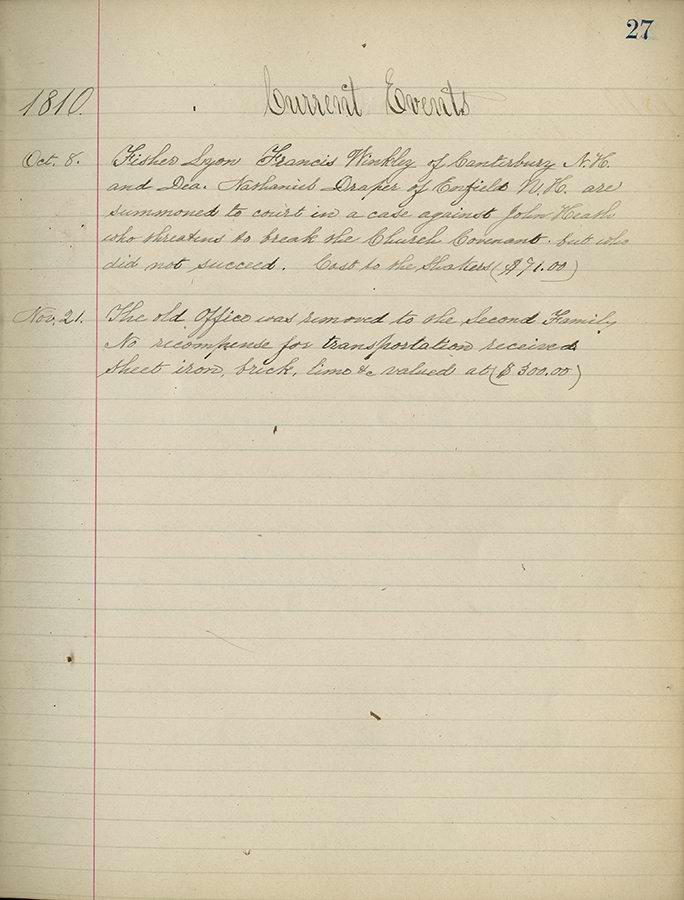 27
1810. Current Events
Oct. 8. Fisher Lyon Francis Winkley of Canterbury N.H.
and Dea. Nathaniel Draper of Enfield N.H. are
summoned to court in a case against John Heath
who threatens to break the Church Covenant. but who
did not succeed. Cost to the Shakers ($71.00)
Nov. 21. The old Office was removed to the Second Family
No recompense for transportation received
Sheet iron, brick, lime &c valued at ($300.00)